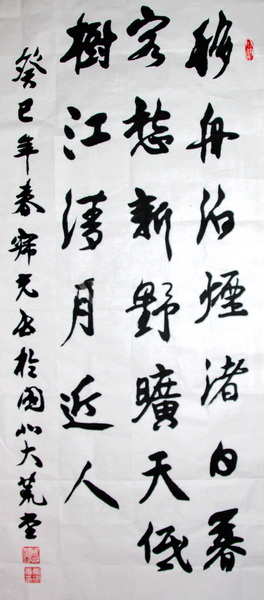 移舟泊煙渚日暮
客愁新野曠天低
樹江清月近人
癸巳年春寐元書於國北大荒堂